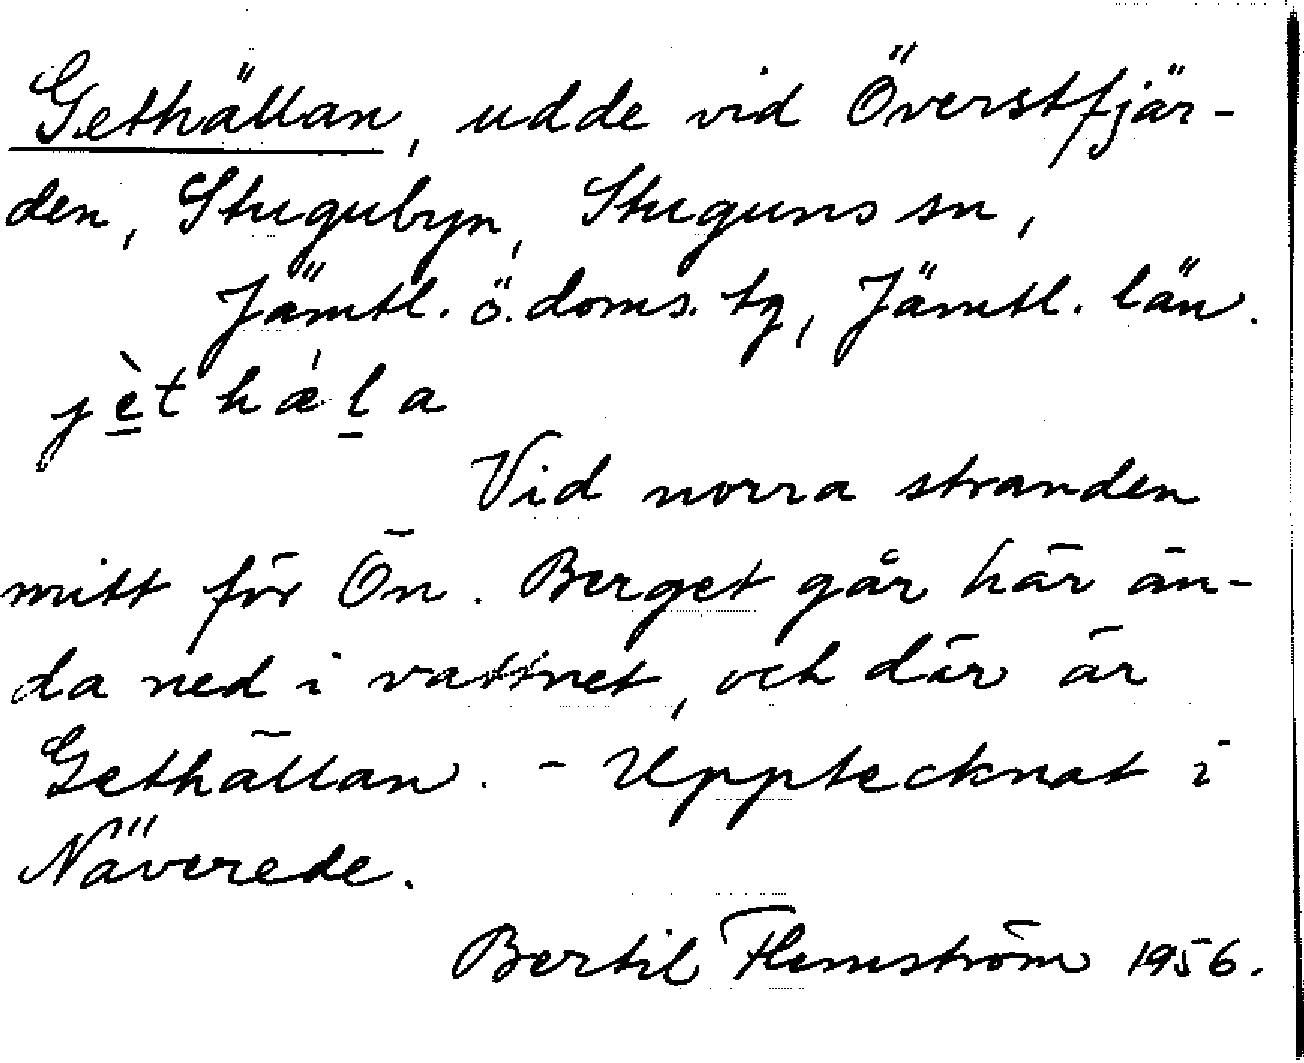 Gethällan, udde vid Överstfjär-
den, Stugubyn, Stuguns sn,
Jämtl. ö. doms. tg, Jämtl. län.
jè̱t hǽḻa
Vid norra stranden
mitt för Ön. Berget går här än-
da ned i vattnet, och där är
Gethällan. - Upptecknat i
Näverede.
Bertil Flemström 1956.